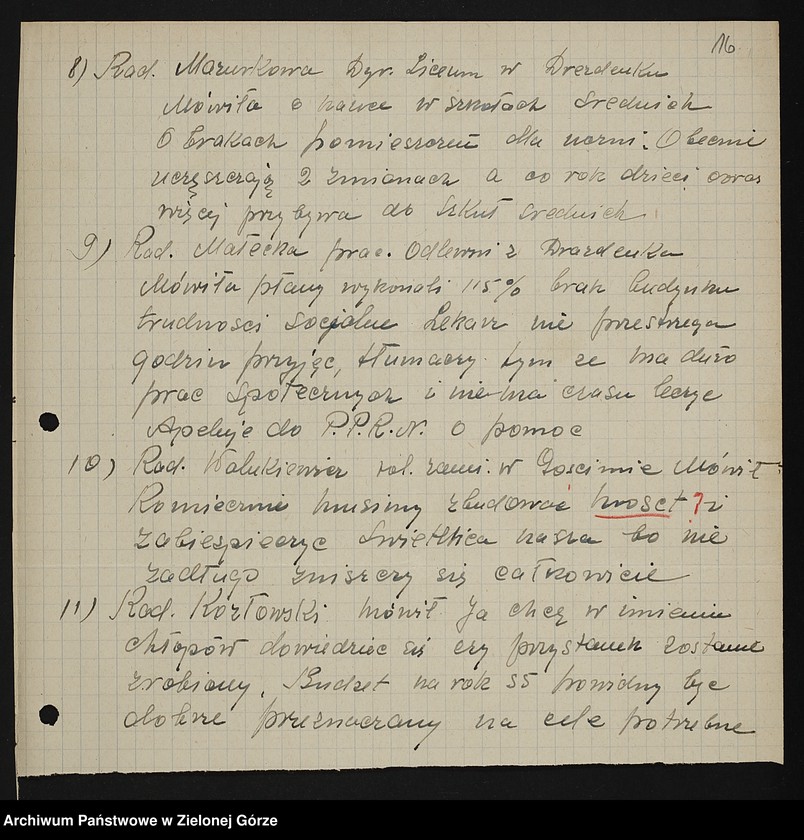 16
8) Rad. Mazurkowa Dyr. Liceum w Drezdenku
Mówiła o nauce w szkołach średnich
O brakach pomieszczeń dla uczni. Obecnie
uczęszczają 2 zmianach a co rok dzieci coraz
więcej przybywa do szkuł średnich
9) Rad. Małecka prac. Odlewni z Drezdenka
Mówiła plany wykonali 115% brak budynku
trudności socjalne Lekarz nie przestrzega
godzin przyjęć, tłumaczy tym ze ma dużo
prac społecznych i nie ma czasu leczyc
Apeluje do P.P.R.N. o pomoc
10) Rad. Walukiewicz rol. zam. w Gościmie Mówił
Koniecznie musimy zbudować most ? i
zabiespieczyc świetlica nasza bo nie
zadługo zniszczy się całkowicie
11) Rad. Kozłowski mówił Ja chcę w imieniu
chłopów dowiedziec się czy przystanek zostanie
zrobiony. Budzet na rok 55 powidny byc
dobrze przeznaczany na cele potrzebne
Archiwum Państwowe w Zielonej Górze